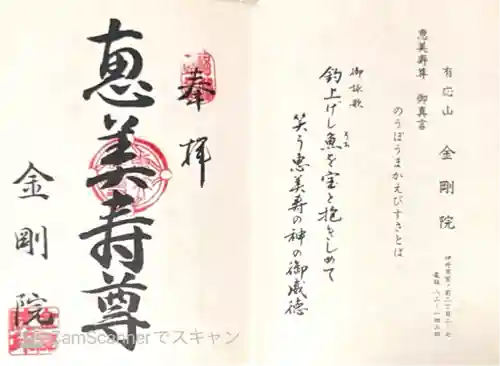 奉拝
恵美寿尊
金剛院
CamScannerでスキャン
有応山 金剛院
恵美寿尊 御真言
のうぼうまかえびすきとば
御詠歌
釣上げし魚を宝と抱きしめて
笑う恵美寿の神の御威徳